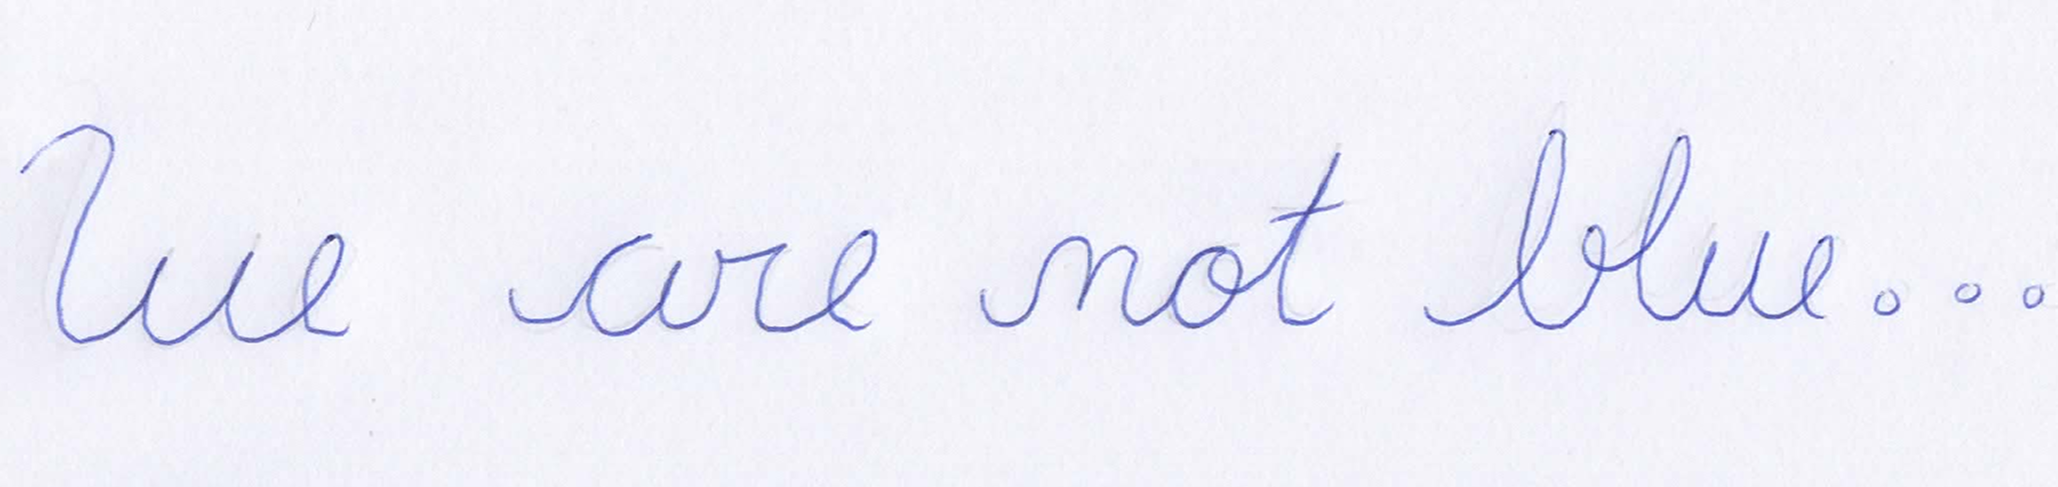 We are not blue...